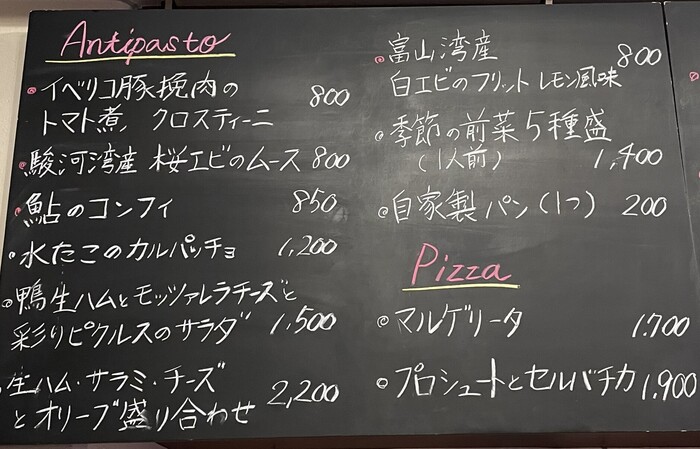 Antipasto
イベリコ豚挽肉の
トマト煮、クロスティーニ 800
駿河湾産 桜エビのムース 800
鮎のコンフィ 850
水たこのカルパッチョ 1,200
鴨生ハムとモッツァレラチーズと
彩りピクルスのサラダ 1,500
生ハム・サラミ・チーズ
とオリーブ盛り合わせ 2,200
富山湾産
白エビのフリット レモン風味 800
季節の前菜5種盛
(1人前) 1,400
自家製パン(1つ) 200
Pizza
マルゲリータ 1.700
プロシュートとセルバチカ 1.900